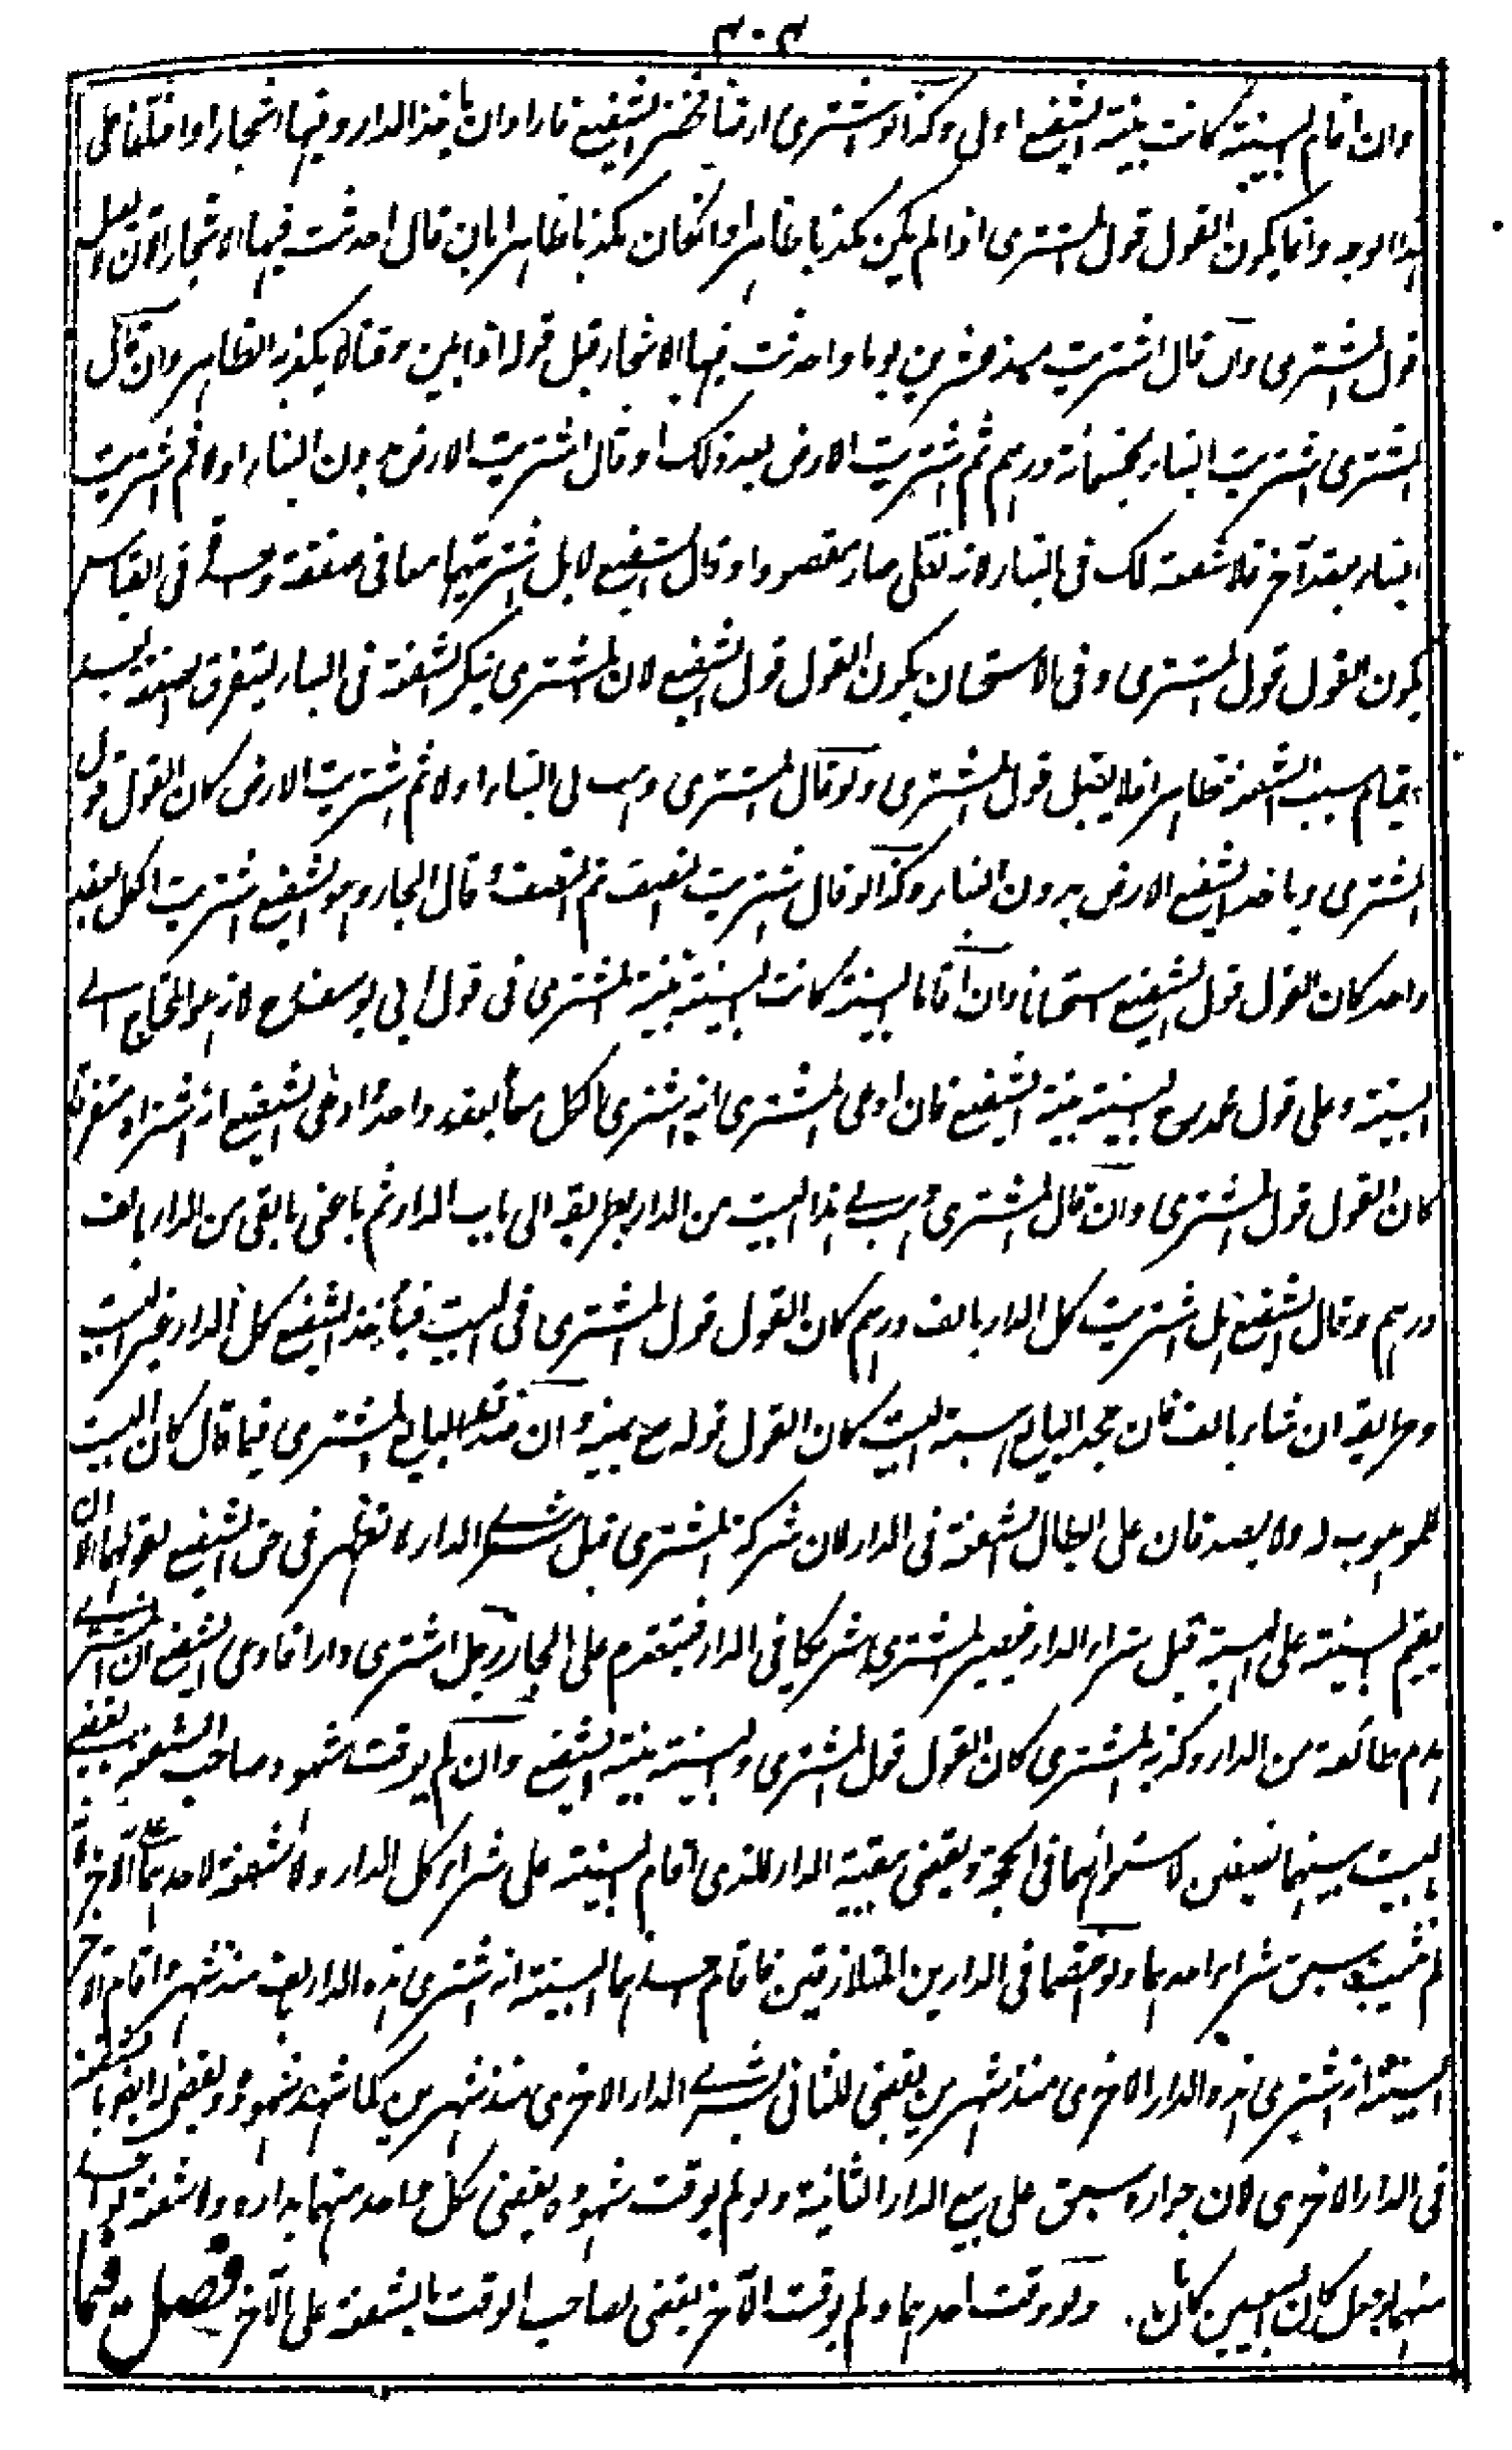 ٤٠٣
وان اقام البينة كانت بينة الشفيع اولى وكذا لو اشترى ارضا فحضر الشفيع فاراد ان ياخذ الدار وفيها اشجار اواختلفا على
هذا الوجه وانما يكون القول قول المشترى اذا لم يكن مكذبا ظاهرا وان كان مكذبا ظاهرا بان قال احدثت فيها الاشجار الآن لا يقبل
قول المشترى وان قال اشتريت منذ عشرين يوما واحدثت فيها الاشجار قبل قوله اذا بين وقتا لا يكذبه الظاهر وان قال
المشترى اشتريت البناء بخمسمائة درهم ثم اشتريت الارض بعد ذلك او قال اشتريت الارض بدون البناء اولا ثم اشتريت
البناء بعقد آخر فلا شفعة لك فى البناء لانه نقلى صار مقصودا وقال الشفيع لا بل اشتريتهما معا فى صفقة واحدة فى القياس
يكون القول قول المشترى وفى الاستحسان يكون القول قول الشفيع لان المشترى ينكر الشفعة فى البناء بتفرق الصفقة بعد
قيام سبب الشفعة ظاهرا فلا يقبل قول المشترى ولو قال المشترى وهب لى البناء اولا ثم اشتريت الارض كان القول قول
المشترى وياخذ الشفيع الارض بدون البناء وكذا لو قال اشتريت النصف ثم النصف وقال الجار وهو الشفيع اشتريت الكل بعقد
واحد كان القول قول الشفيع استحسانا وان اقاما البينة كانت البينة بينة المشترى فى قول ابى يوسف رح لانه هو المحتاج الى
البينة وعلى قول محمد رح البينة بينة الشفيع فان ادعى المشترى انه اشترى الكل معا بعقد واحد وادعى الشفيع انه اشتراه متفرقا
كان القول قول المشترى وان قال المشترى وهب لى هذا البيت من الدار بطريقه الى باب الدار ثم باعنى ما بقى من الدار بالف
درهم وقال الشفيع بل اشتريت كل الدار بالف درهم كان القول قول المشترى فى البيت فيأخذ الشفيع كل الدار غير البيت
وطريقه ان شاء بالف فان جحد البائع هبة البيت كان القول قوله مع يمينه وان صدق البائع المشترى فيما قال كان البيت
للموهوب له ولا يصدقان على ابطال الشفعة فى الدار لان شركة المشترى قبل شرى الدار لا تظهر فى حق الشفيع بقولهما الا ان
يقيم البينة على الهبة قبل شراء الدار فيصير المشترى شريكا فى الدار فيتقدم على الجار رجل اشترى دارا فادعى الشفيع ان المشترى
هدم طائفة من الدار وكذبه المشترى كان القول قول المشترى والبينة بينة الشفيع وان لم يوقت شهود صاحب الشفعة يقضى
بالبيت بينهما نصفين لاستوائهما فى الحجة ويقضى ببقية الدار للذى اقام البينة على شراء كل الدار ولا شفعة لاحدهما على الآخر اذا
لم يثبت سبق شراء احدهما ولو اختصما فى الدارين المتلازقتين فاقام احدهما البينة انه اشترى هذه الدار بالف منذ شهر واقام الآخر
البينة انه اشترى هذه الدار الاخرى منذ شهرين يقضى للثانى بشرى الدار الاخرى منذ شهرين كما شهد شهوده ويقضى له ايضا بالشفعة
فى الدار الاخرى لان جواره سبق على بيع الدار الثانية ولو لم يوقت شهوده يقضى لكل واحد منهما بداره ولا شفعة لواحد
منهما لجعل كأن البيعين كانا معا ولو وقت احدهما ولم يوقت الآخر يقضى لصاحب الوقت بالشفعة على الآخر فصل فيما